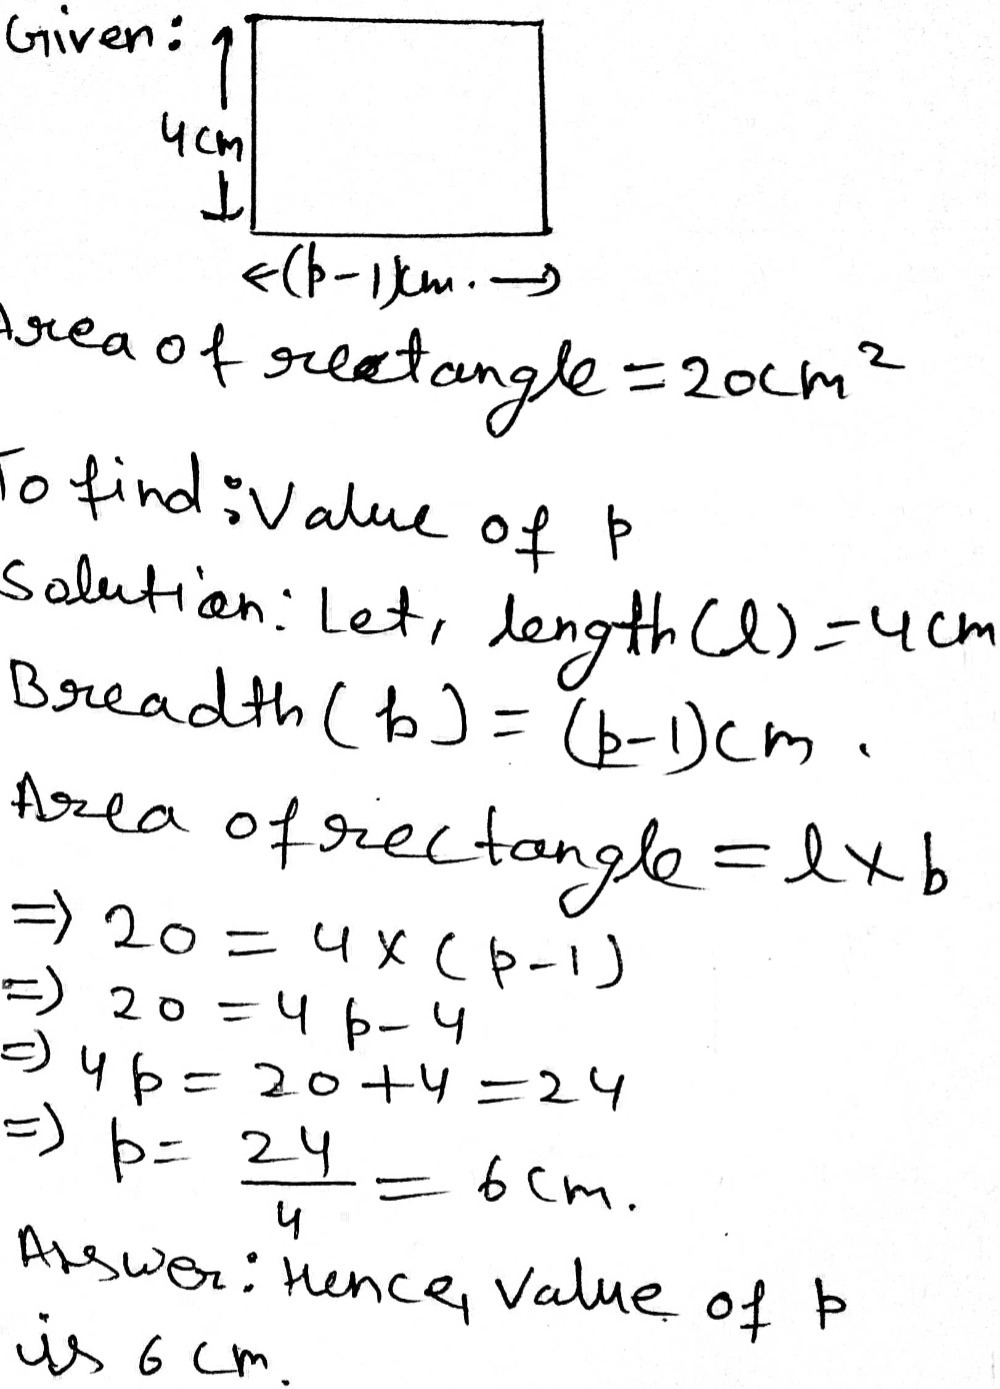 Given:
4cm
(p-1)cm.
Area of rectangle = 20cm²
To find: Value of p
Solution: Let, length (l) = 4cm
Breadth (b) = (p-1)cm.
Area of rectangle = l × b
⇒ 20 = 4 × (p-1)
⇒ 20 = 4p - 4
⇒ 4p = 20 + 4 = 24
⇒ p = 24/4 = 6 cm.
Answer: Hence, Value of p
is 6 cm.